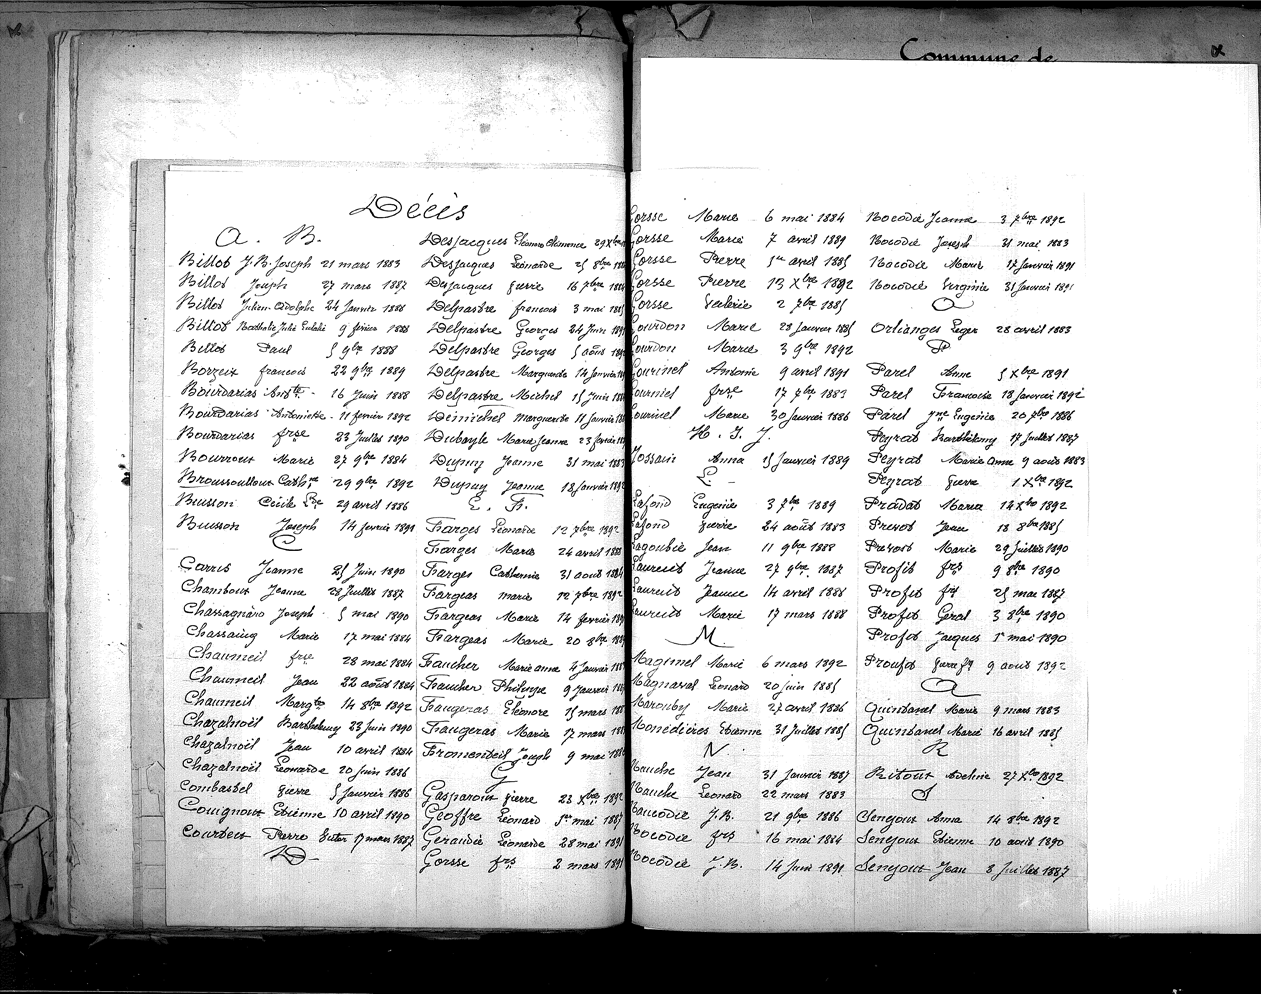 Commune de
Décès
A. B.
Billot J. B. Joseph 21 mars 1883
Billot Joseph 27 mars 1887
Billot Julien Adolphe 24 Janvier 1888
Billot 9 février 1888
Billot Paul 5 9bre 1888
Borzeix françois 22 9bre 1889
Bourdarias Antte 16 Juin 1888
Bourdarias Antoinette 11 février 1892
Bourdarias frse 23 Juillet 1890
Bourroux Marie 27 9bre 1884
Broussouloux Cathne 29 9bre 1892
Buisson Cécile 29 avril 1886
Buisson Joseph 14 fevrier 1891
C
Carris Jeanne 25 Juin 1890
Chamboux Jeanne 28 Juillet 1887
Chassagnard Joseph 5 mai 1890
Chassaing Marie 17 mai 1884
Chaumeil frse 28 mai 1884
Chaumeil Jean 22 août 1884
Chaumeil Margte 14 8bre 1892
Chazalnoël Barthélemy 23 Juin 1890
Chazalnoël Jean 10 avril 1884
Chazalnoël Léonarde 20 Juin 1886
Combastel pierre 5 Janvier 1886
Couignoux Etienne 10 avril 1890
Courbeix Pierre 17 mars 1887
D
Desjacques Eléonore Clémence 29 Xbre
Desjacques Léonarde 25 8bre
Desjacques pierre 16 7bre
Delpastre françois 3 mai
Delpastre Georges 24 Juin
Delpastre Georges 5 août
Delpastre Marguerite 14 Janvier
Delpastre Michel 15 Juin
Demichel marguerite 11 Janvier
Dubayle Marie Jeanne 23 février
Dupuy Jeanne 31 mai 1883
Dupuy Jeanne 18 Janvier 1892
E. F.
Farges Léonarde 12 7bre 1892
Farges Marie 24 avril
Farges Catherine 31 août
Fargeas marie 12 7bre 1892
Fargeas Marie 14 fevrier
Fargeas Marie 20 8bre
Faucher Marie anne 4 Janvier
Faucher Philippe 9 Janvier
Faugeras Eléonore 15 mars
Faugeras Marie 17 mars
Fromenteil Joseph 9 mai
G
Gasparoux pierre 23 Xbre 1892
Geoffre Léonard 1er mai 1887
Geraudie Léonarde 28 mai 1891
Gorsse frs 2 mars 1891
Gorsse Marie 6 mai 1884
Gorsse Marie 7 avril 1889
Gorsse Pierre 5 avril 1885
Gorsse Pierre 13 Xbre 1892
Gorsse Valérie 2 7bre 1885
Gourdon Marie 28 Janvier 1885
Gourdon Marie 3 9bre 1892
Gourinel Antoine 9 avril 1891
Gourniel frse 17 7bre 1883
Gourinel Marie 30 Janvier 1886
H. I. J.
Jossain Anna 15 Janvier 1889
L
Lafond Eugénie 3 7bre 1889
Lafond pierre 24 août 1883
Lagoubie Jean 11 9bre 1888
Laurent Jeanne 27 9bre 1887
Laurent Jeanne 14 avril 1888
Laurent Marie 17 mars 1888
M
Maginel Marie 6 mars 1892
Magnaval Léonard 20 juin 1885
Marouby Marie 27 avril 1886
Monédières Etienne 31 Juillet 1885
N
Nauche Jean 31 Janvier 1887
Nauche Léonard 22 mars 1883
Naucodie J. B. 21 9bre 1886
Nocodie frs 16 mai 1884
Nocodie J. B. 14 Juin 1891
Nocodie Jeanne 3 7bre 1892
Nocodie Joseph 31 mai 1883
Nocodie Marie 17 Janvier 1891
Nocodie Virginie 31 Janvier 1891
O
Orlianges Leger 28 avril 1883
P
Parel Anne 5 Xbre 1891
Parel Françoise 18 Janvier 1892
Parel Eugénie 20 7bre 1886
Peyrat Barthélemy 17 Juillet 1887
Peyrat Marie Anne 9 août 1883
Peyrat pierre 1 Xbre 1892
Pradat Maria 14 Xbre 1892
Prevot Jean 18 8bre 1885
Prevost Marie 29 Juillet 1890
Profit frs 9 8bre 1890
Profit frs 25 mai 1887
Profit Géral 3 8bre 1890
Profot Jacques 1er mai 1890
Proufot pierre fs 9 août 1892
Q
Quintanel Marie 9 mars 1883
Quintanel Marie 16 avril 1885
R
Ribout 27 Xbre 1892
S
Senejoux Anna 14 8bre 1892
Senejoux Etienne 10 août 1890
Senejoux Jean 8 Juillet 1887